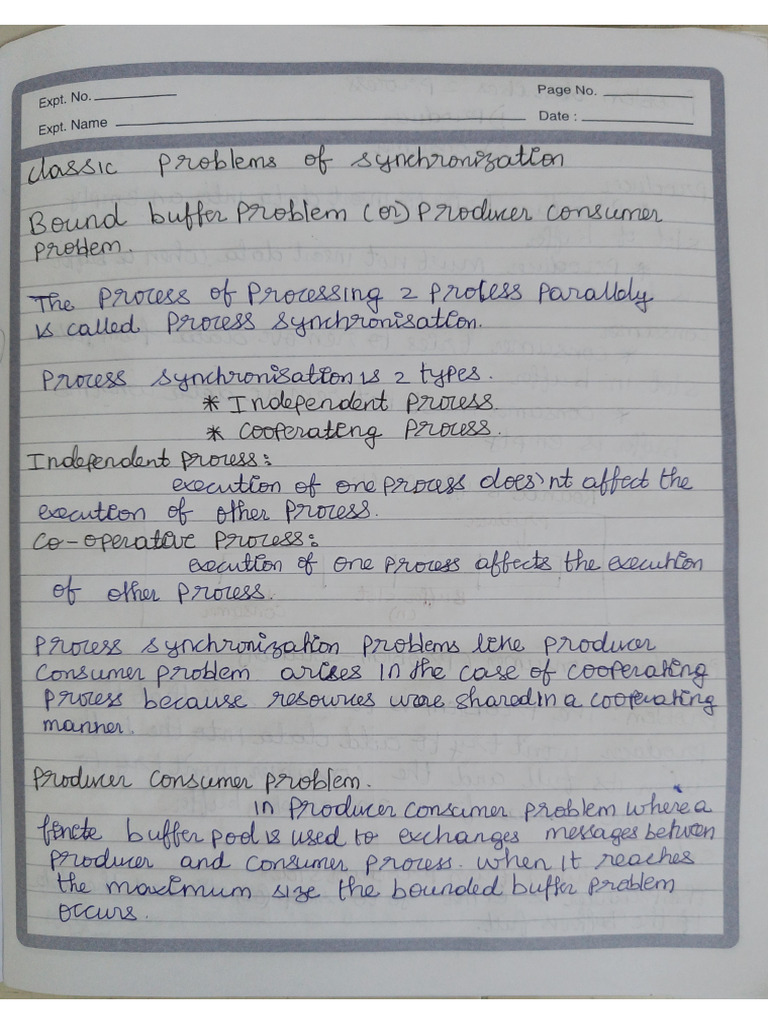 Expt. No.
Page No.
Expt. Name
Date :
classic problems of synchronization
Bound buffer problem (or) producer consumer
problem.
The process of processing 2 process parallely
is called process synchronisation.
process synchronisation is 2 types.
* Independent process.
* cooperating process.
Independent process:
execution of one process does'nt affect the
execution of other process.
co-operative process:
execution of one process affects the execution
of other process.
process synchronization problems like producer
consumer problem arises in the case of cooperating
process because resources were shared in a cooperating
manner.
producer consumer problem.
in producer consumer problem where a
finete buffer pool is used to exchanges messages between
producer and consumer process. when it reaches
the maximum size the bounded buffer problem
occurs.